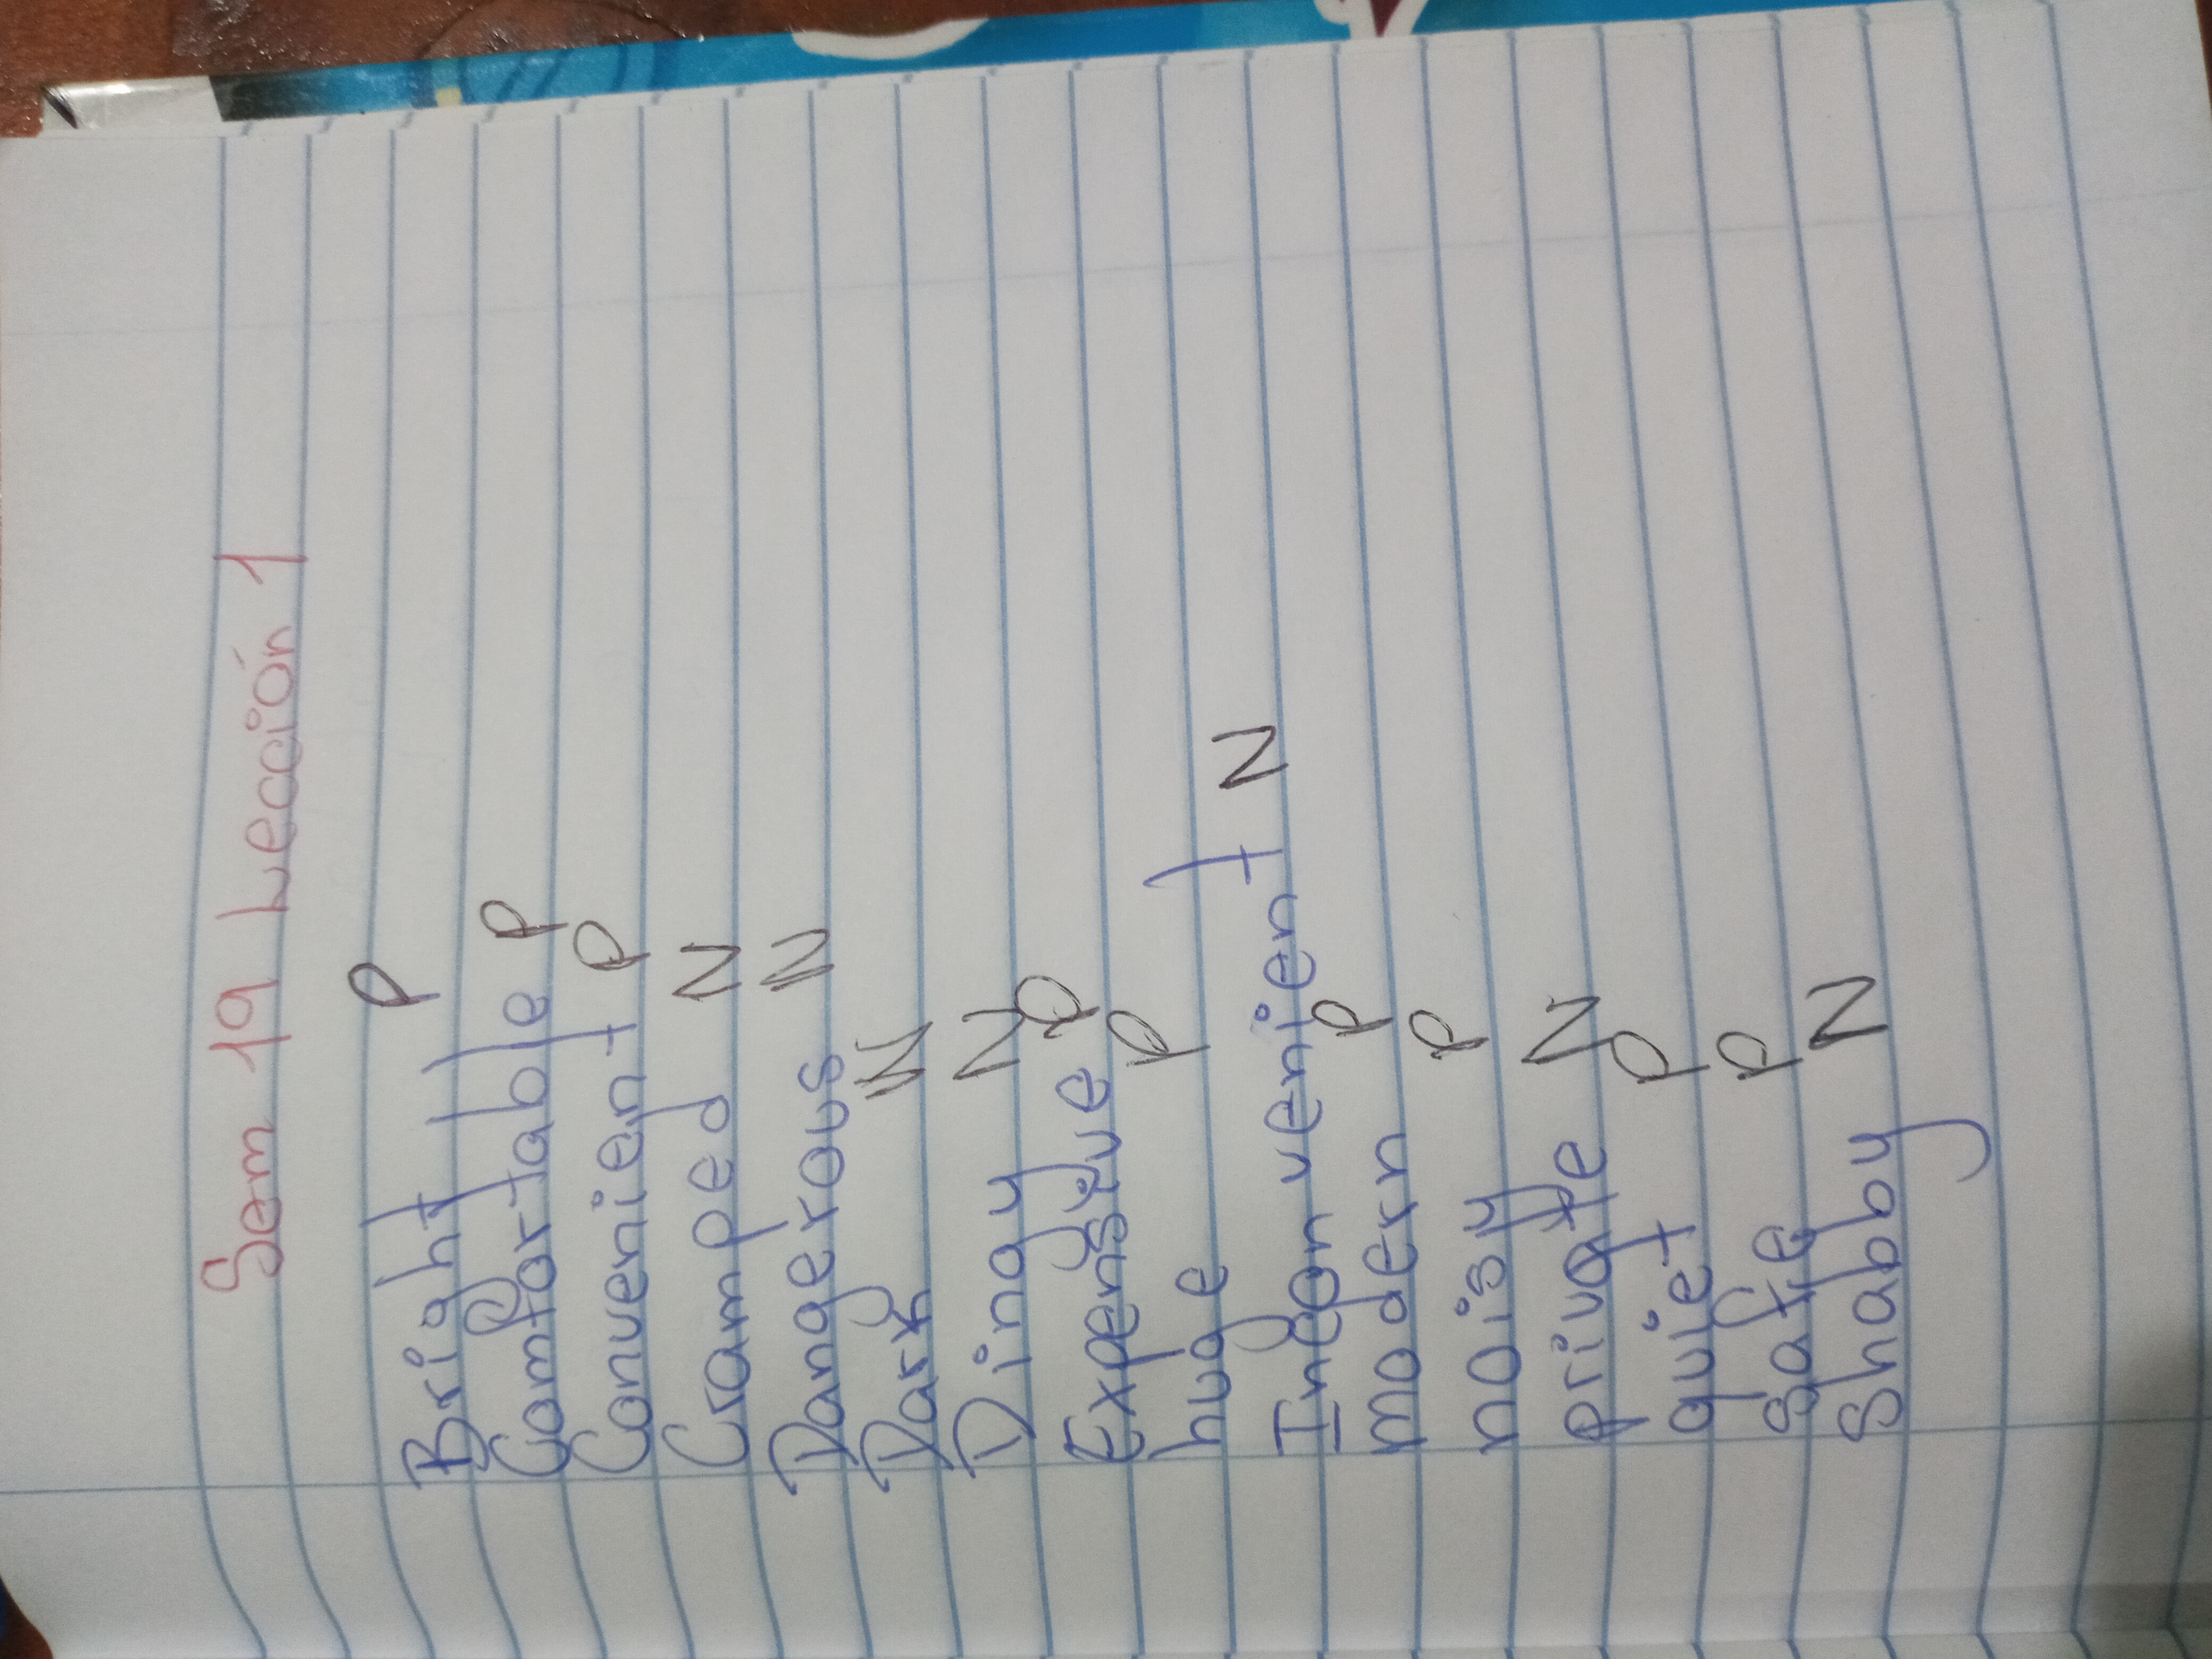 Sem 19 Lección 1
Bright P
Comfortable P
Convenient P
Cramped N
Dangerous N
Dark N
Dingy N
Expensive P
huge P
Inconvenient N
modern P
noisy P
private N
quiet P
safe P
Shabby N